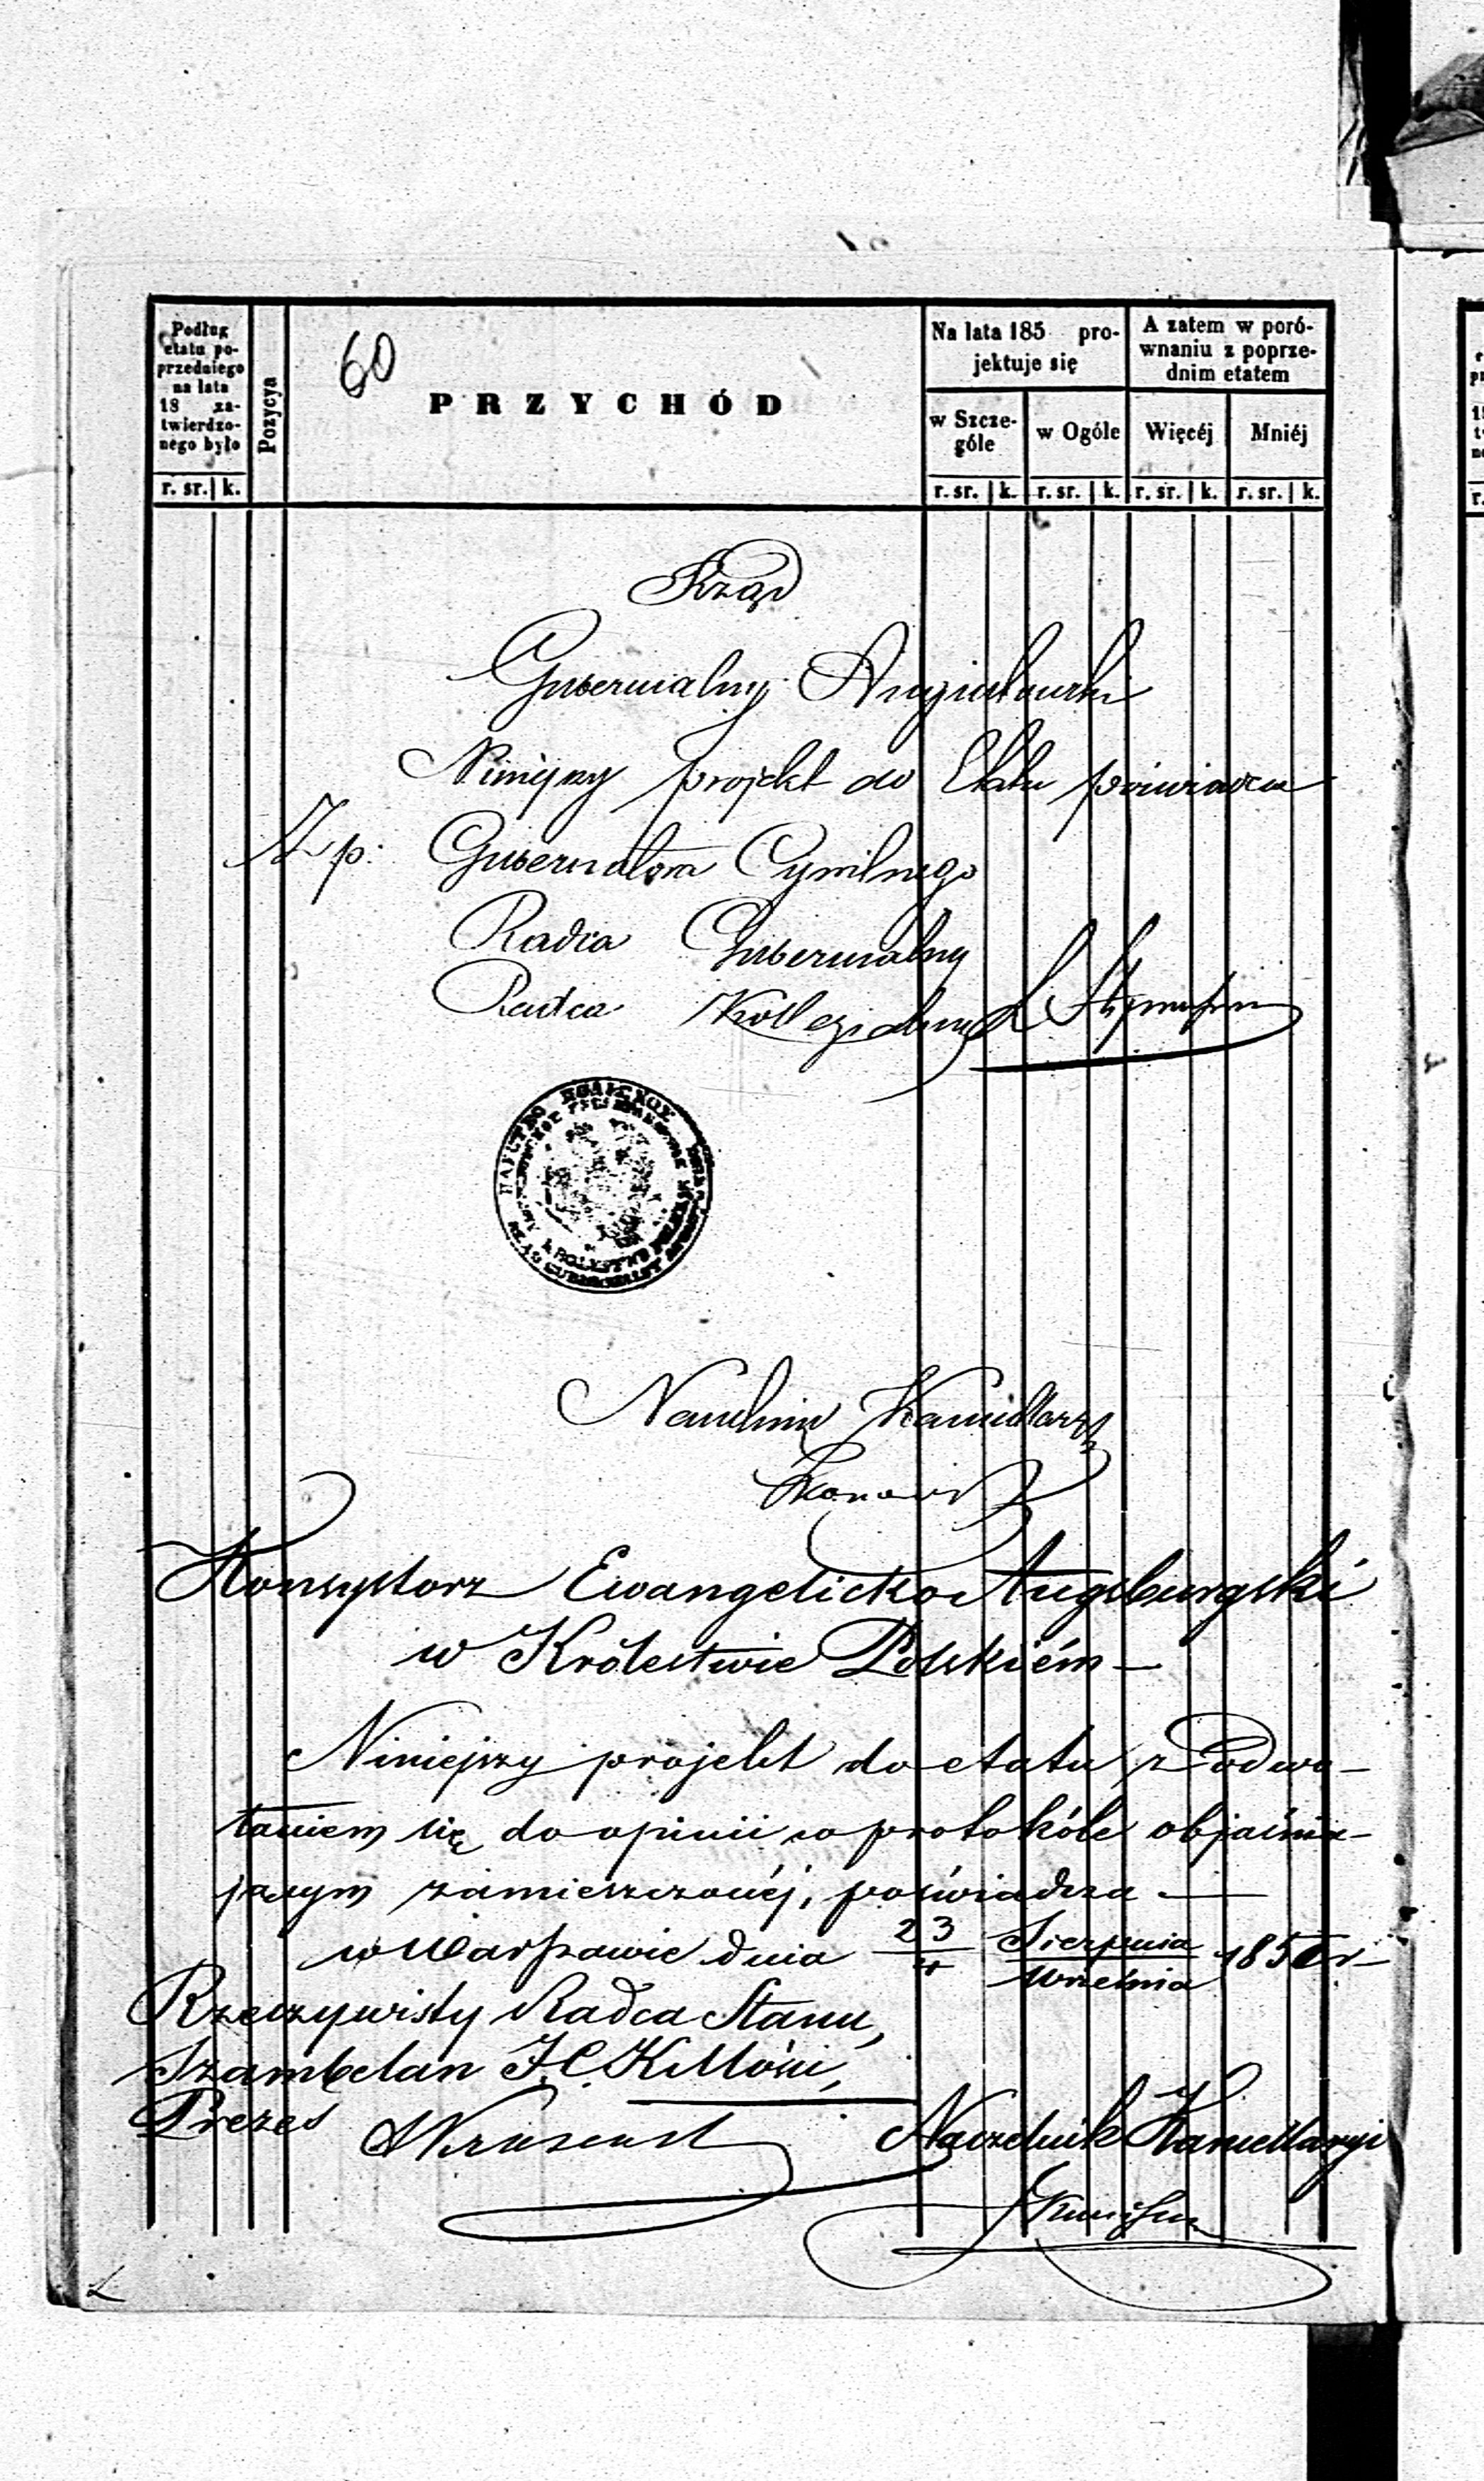 60
Podług
etatu po-
przedniego
na lata
18 za-
twierdzo-
nego było
Pozycya
PRZYCHÓD
Na lata 185 pro-
jektuje się
A zatem w poró-
wnaniu z poprze-
dnim etatem
w Szcze-
góle
w Ogóle
Więcéj
Mniéj
r. sr. k.
r. sr. k. r. sr. k. r. sr. k. r. sr. k.
Rząd
Gubernialny Augustowski
Niniejszy projekt do Etatu poświadcza
Z p: Gubernatora Cywilnego
Radca Gubernialny
Radca Kollegialny
Naczelnik Kancellaryi
Konsystorz Ewangelicko Augsburgski
w Królestwie Polskiém —
Niniejszy projekt do etatu, z Odwo-
łaniem się do opinii w protokóle objaśnia-
jącym zamieszczonéj, poświadcza —
w Warszawie dnia 23/4 Sierpnia/Września 185 r —
Rzeczywisty Radca Stanu,
Szambelan J. C. K. Mości,
Prezes
Naczelnik Kancellaryi